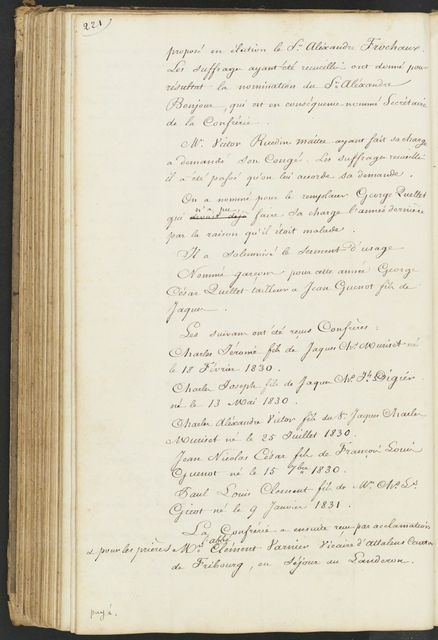 221
proposé en élection le Sr. Alexandre Frochaux.
Les suffrages ayant été recueillis ont donné pour
résultat la nomination du Sr. Aléxandre
Bonjour, qui est en conséquence nommé Secrétaire
de la Confrérie.
Mr. Victor Ruedin maître ayant fait sa charge
a demandé son Congé. Les suffrages recueillis
il a été passé qu'on lui accorde sa demande.
On a nommé pour le remplacer George Quellet
n'a pu
qui devait déjà faire sa charge l'année dernière
par la raison qu'il était malade.
Il a solemnisé le serment d'usage
Nommé garçons pour cette année George
César Quellet tailleur & Jean Guenot fils de
Jaques.
Les suivans ont été reçus Confrères :
Charles Jérome fils de Jaques Chs. Muriset né
le 18 Février 1830.
Charles Joseph fils de Jaques Chs. Jh. Digier
né le 13 Mai 1830.
Charles Aléxandre Victor fils du Sr. Jaques Charles
Muriset né le 25 Juillet 1830.
Jean Nicolas César fils de François Louis
Guenot né le 15 7bre 1830.
Paul Louis Clément fils de Mr. Chs. Ls.
Girot né le 9 Janvier 1831.
La Confrérie a ensuite reçu par acclamations
l'abbé
& pour les prières Mr. Clément Varnier Vicaire d'Attalens Canton
de Fribourg, en séjour au Landeron.
payé.